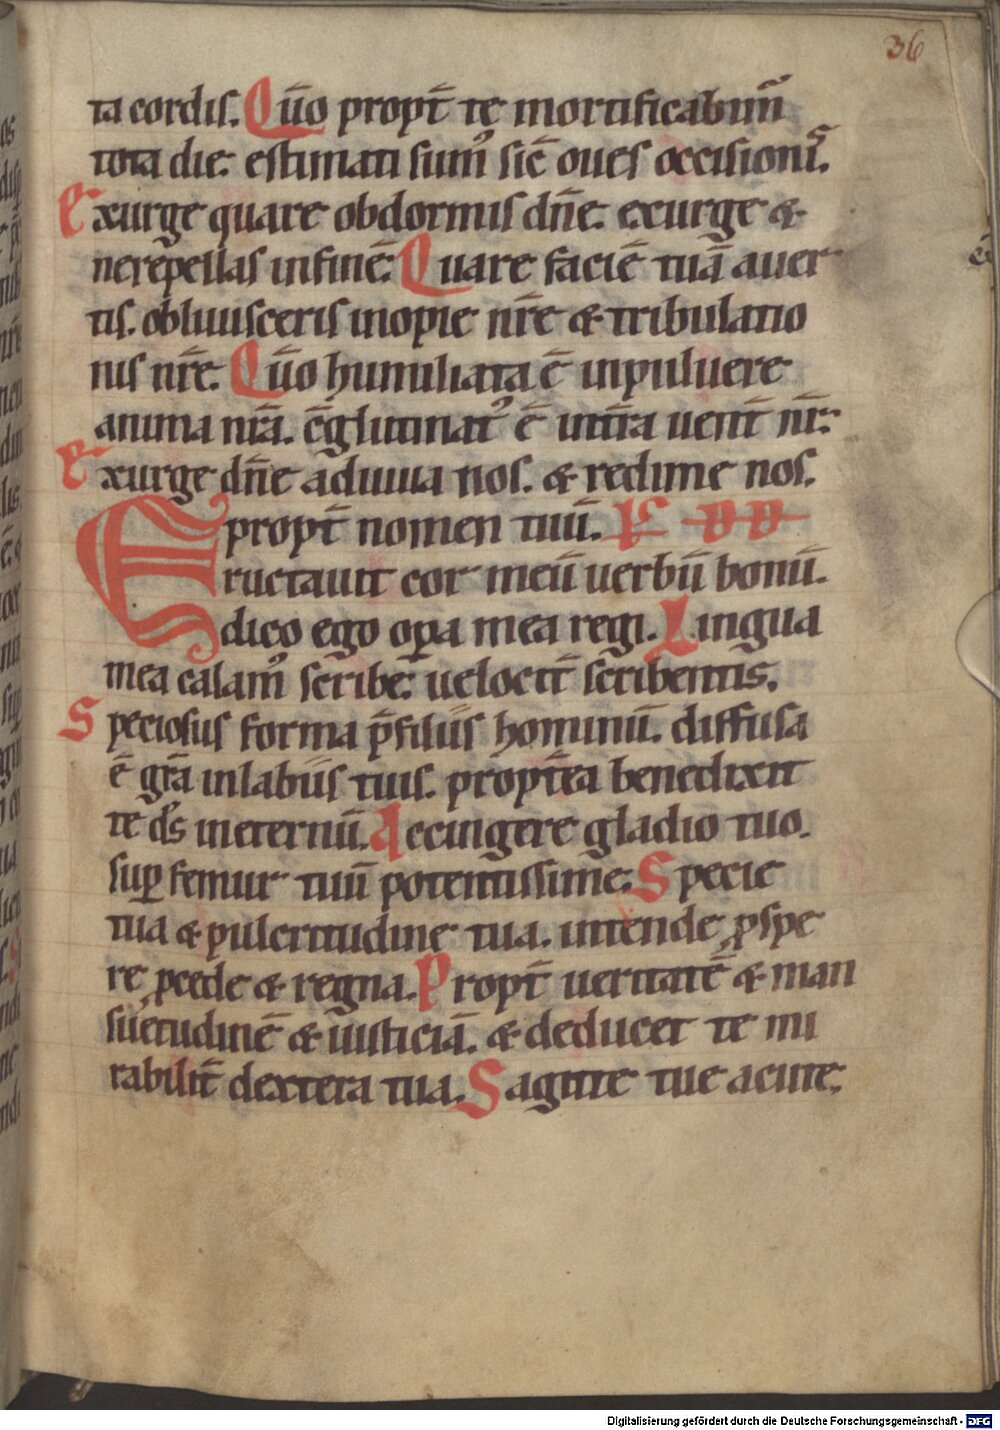 36
ta cordis. Qūo propt̄ te mortificabim᷒
tota die. estimati sum᷒ sic̄ oues occisionis.
exurge quare obdormis dn̄e. exurge &
nerepellas infinē. Quare faciē tuā auer
tis. obliuisceris inopie nr̄e & tribulatio
nis nr̄e. Qūo humiliata ē inpuluere
anima nr̄a. c̄glutinat᷒ ē int̄ra uent̄ nr̄.
exurge dn̄e adiuua nos. & redime nos.
propt̄ nomen tuū. PS DD
Eructauit cor meū uerbū bonū.
dico ego oꝑa mea regi. Lingua
mea calam᷒ scribe. uelocit̄ scribentis.
Speciosus forma p̄filiis hominū. diffusa
ē gr̄a inlabiis tuis. propt̄ea benedixit
te ds̄ ineternū. Accingere gladio tuo.
suꝑ femur tuū potentissime. Specie
tua & pulcritudine tua. intende ꝓspe
re ꝓcede & regna. Propt̄ ueritatē & man
suetudinē & iusticiā. & deducet te mi
rabilit̄ dextera tua. Sagitte tue acute.
Digitalisierung gefördert durch die Deutsche Forschungsgemeinschaft - DFG